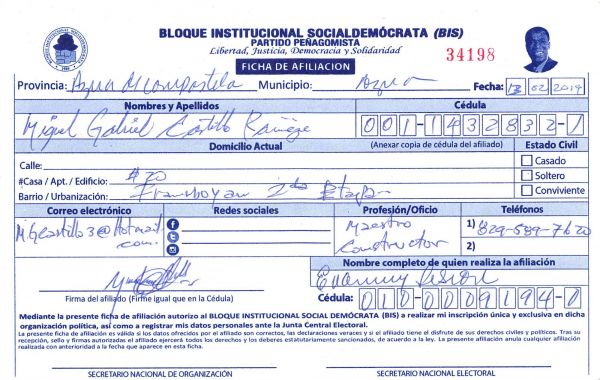 BLOQUE INSTITUCIONAL SOCIALDEMÓCRATA (BIS)
PARTIDO PEÑAGOMISTA
Libertad, Justicia, Democracia y Solidaridad
34198
FICHA DE AFILIACION
Provincia: Azua de Compostela Municipio: Azua Fecha: 13 02 2019
Nombres y Apellidos Cédula
Miguel Gabriel Castillo 001-1432832-1
Domicilio Actual (Anexar copia de cédula del afiliado) Estado Civil
Calle: Casado
#Casa / Apt. / Edificio: #20 Soltero
Barrio / Urbanización: 2da Etapa Conviviente
Correo electrónico Redes sociales Profesión/Oficio Teléfonos
M.GCastillo3@Hotmail.com. Maestro Constructor 1) 829-589-7620
2)
Nombre completo de quien realiza la afiliación
Firma del afiliado (Firme igual que en la Cédula) Cédula: 010-0009194-0
Mediante la presente ficha de afiliación autorizo al BLOQUE INSTITUCIONAL SOCIAL DEMÓCRATA (BIS) a realizar mi inscripción única y exclusiva en dicha
organización política, así como a registrar mis datos personales ante la Junta Central Electoral.
La presente ficha de afiliación es válida si los datos ofrecidos por el afiliado son correctos, las declaraciones veraces y si el afiliado tiene el disfrute de sus derechos civiles y políticos. Tras su
recepción, sello y firmas autorizadas el afiliado ejercerá todos los derechos y los deberes estatutariamente sancionados, de acuerdo a la ley. La presente afiliación anula cualquier afiliación
realizada con anterioridad a la fecha que aparece en esta ficha.
SECRETARIO NACIONAL DE ORGANIZACIÓN SECRETARIO NACIONAL ELECTORAL